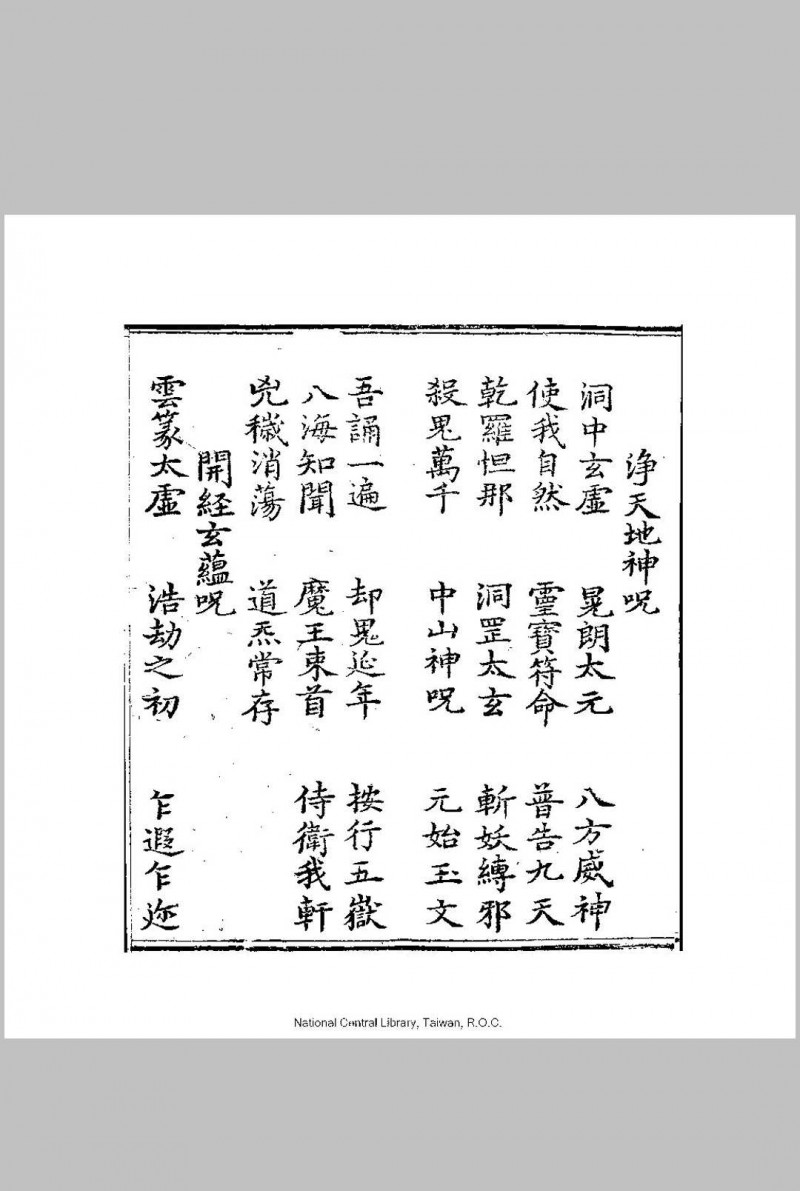 浄天地神呪
洞中玄虛　晃朗太元　八方威神
使我自然　靈寶符命　普告九天
乾羅怛那　洞罡太玄　斬妖縛邪
殺鬼萬千　中山神呪　元始玉文
吾誦一遍　却鬼延年　按行五嶽
八海知聞　魔王束首　侍衛我軒
兇穢消蕩　道炁常存
開経玄蘊呪
雲篆太虛　浩劫之初　乍遐乍迩
National Central Library, Taiwan, R.O.C.